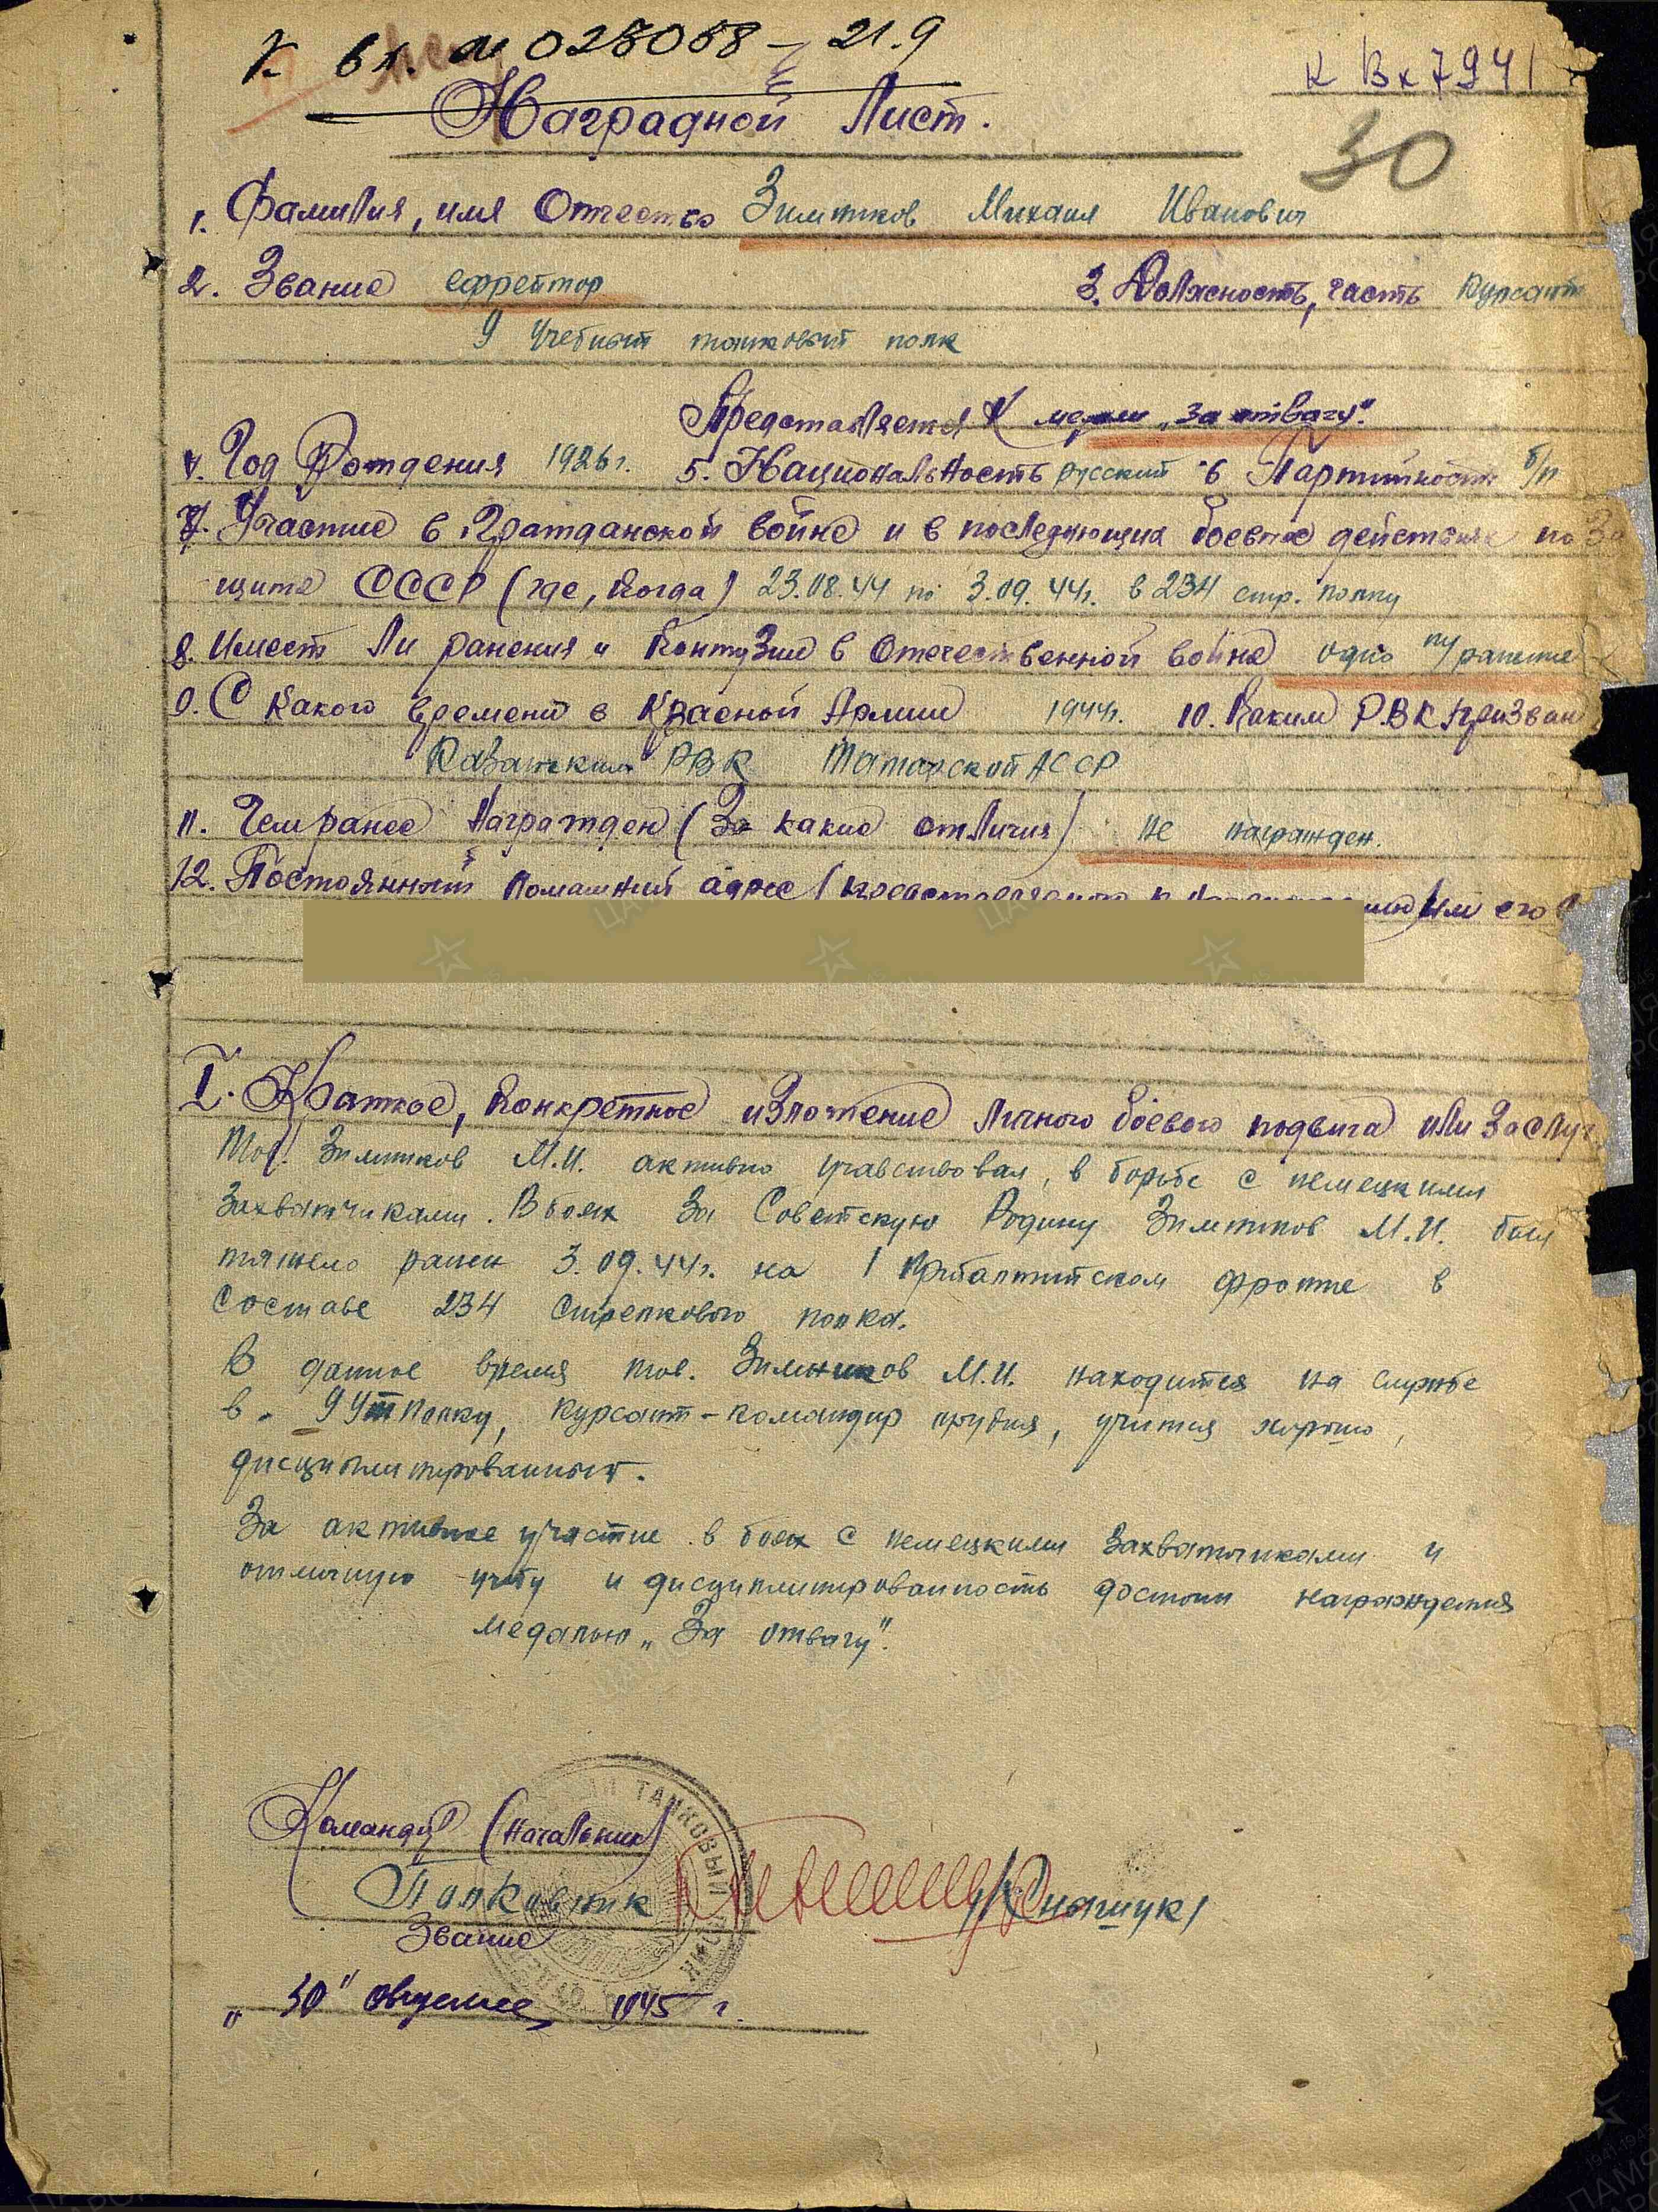 К вх. № 025058 - 21.9
К Вх 7941
Наградной Лист.
30
1. Фамилия, имя Отчество Зимников Михаил Иванович
2. Звание ефрейтор 3. Должность, часть курсант
9 Учебный танковый полк
Представляется К медали „За отвагу".
4. Год Рождения 1926г. 5. Национальность русский 6 Партийность б/п
7. Участие в Гражданской войне и в последующих боевых действиях по За
щите СССР (где, когда) 23.08.44 по 3.09.44г. в 234 стр. полку
8. Имеет Ли ранения и Контузии в Отечественной войне одно ранение
9. С Какого времени в Красной Армии 1944г. 10. Каким Р.В.К призван
РВК Татарской АССР
11. Чем ранее Награжден (За какие отличия) не награжден.
12. Постоянный Домашний адрес (представляемого к или его
I. Краткое, Конкретное изложение личного боевого подвига или Заслуг
Тов. Зимников М.И. активно учавствовал, в борьбе с немецкими
захватчиками. В боях За Советскую Родину Зимников М.И. был
тяжело ранен 3.09.44г. на 1 Прибалтийском фронте в
составе 234 Стрелкового полка.
В данное время тов. Зимников М.И. находится на службе
в 9 УТПолку, курсант-командир орудия, учится хорошо,
дисциплинированный.
За активное участие в боях с немецкими захватчиками и
отличную учебу и дисциплинированность достоин награждения
медалью „За отвагу".
Командир (Начальник)
Полковник
Звание
„30" августа 1945 г.
ТАНКОВЫЙ